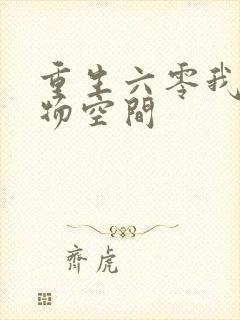 重生六零我
物空間
齊虎